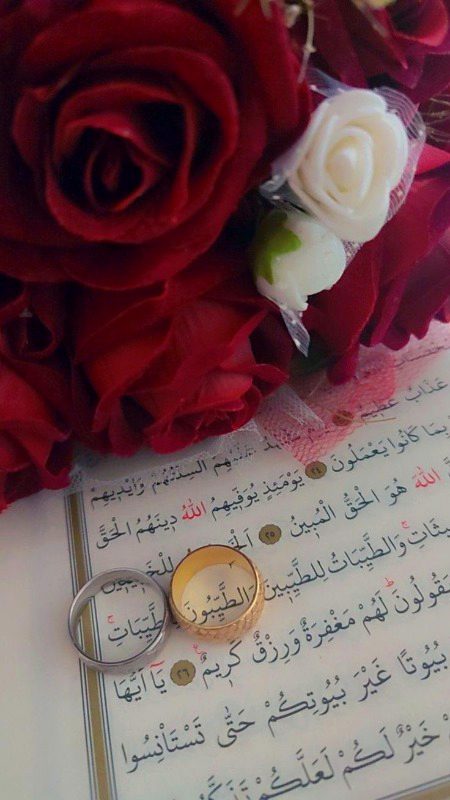 عَذَابٌ عَظِيمٌ عَلَيْهِمْ اَلْسِنَتُهُمْ وَاَيْدِيهِمْ
بِمَا كَانُوا يَعْمَلُونَ ٢٤ يَوْمَئِذٍ يُوَفِّيهِمُ اللّٰهُ دِينَهُمُ الْحَقَّ
اللّٰهَ هُوَ الْحَقُّ الْمُبِينُ ٢٥
وَالطَّيِّبَاتُ لِلطَّيِّبِينَ وَالطَّيِّبُونَ
يَقُولُونَ لَهُمْ مَغْفِرَةٌ وَرِزْقٌ كَرِيمٌ ٢٦ يَٓا اَيُّهَا
بُيُوتًا غَيْرَ بُيُوتِكُمْ حَتّٰى تَسْتَأْنِسُوا
خَيْرٌ لَكُمْ لَعَلَّكُمْ